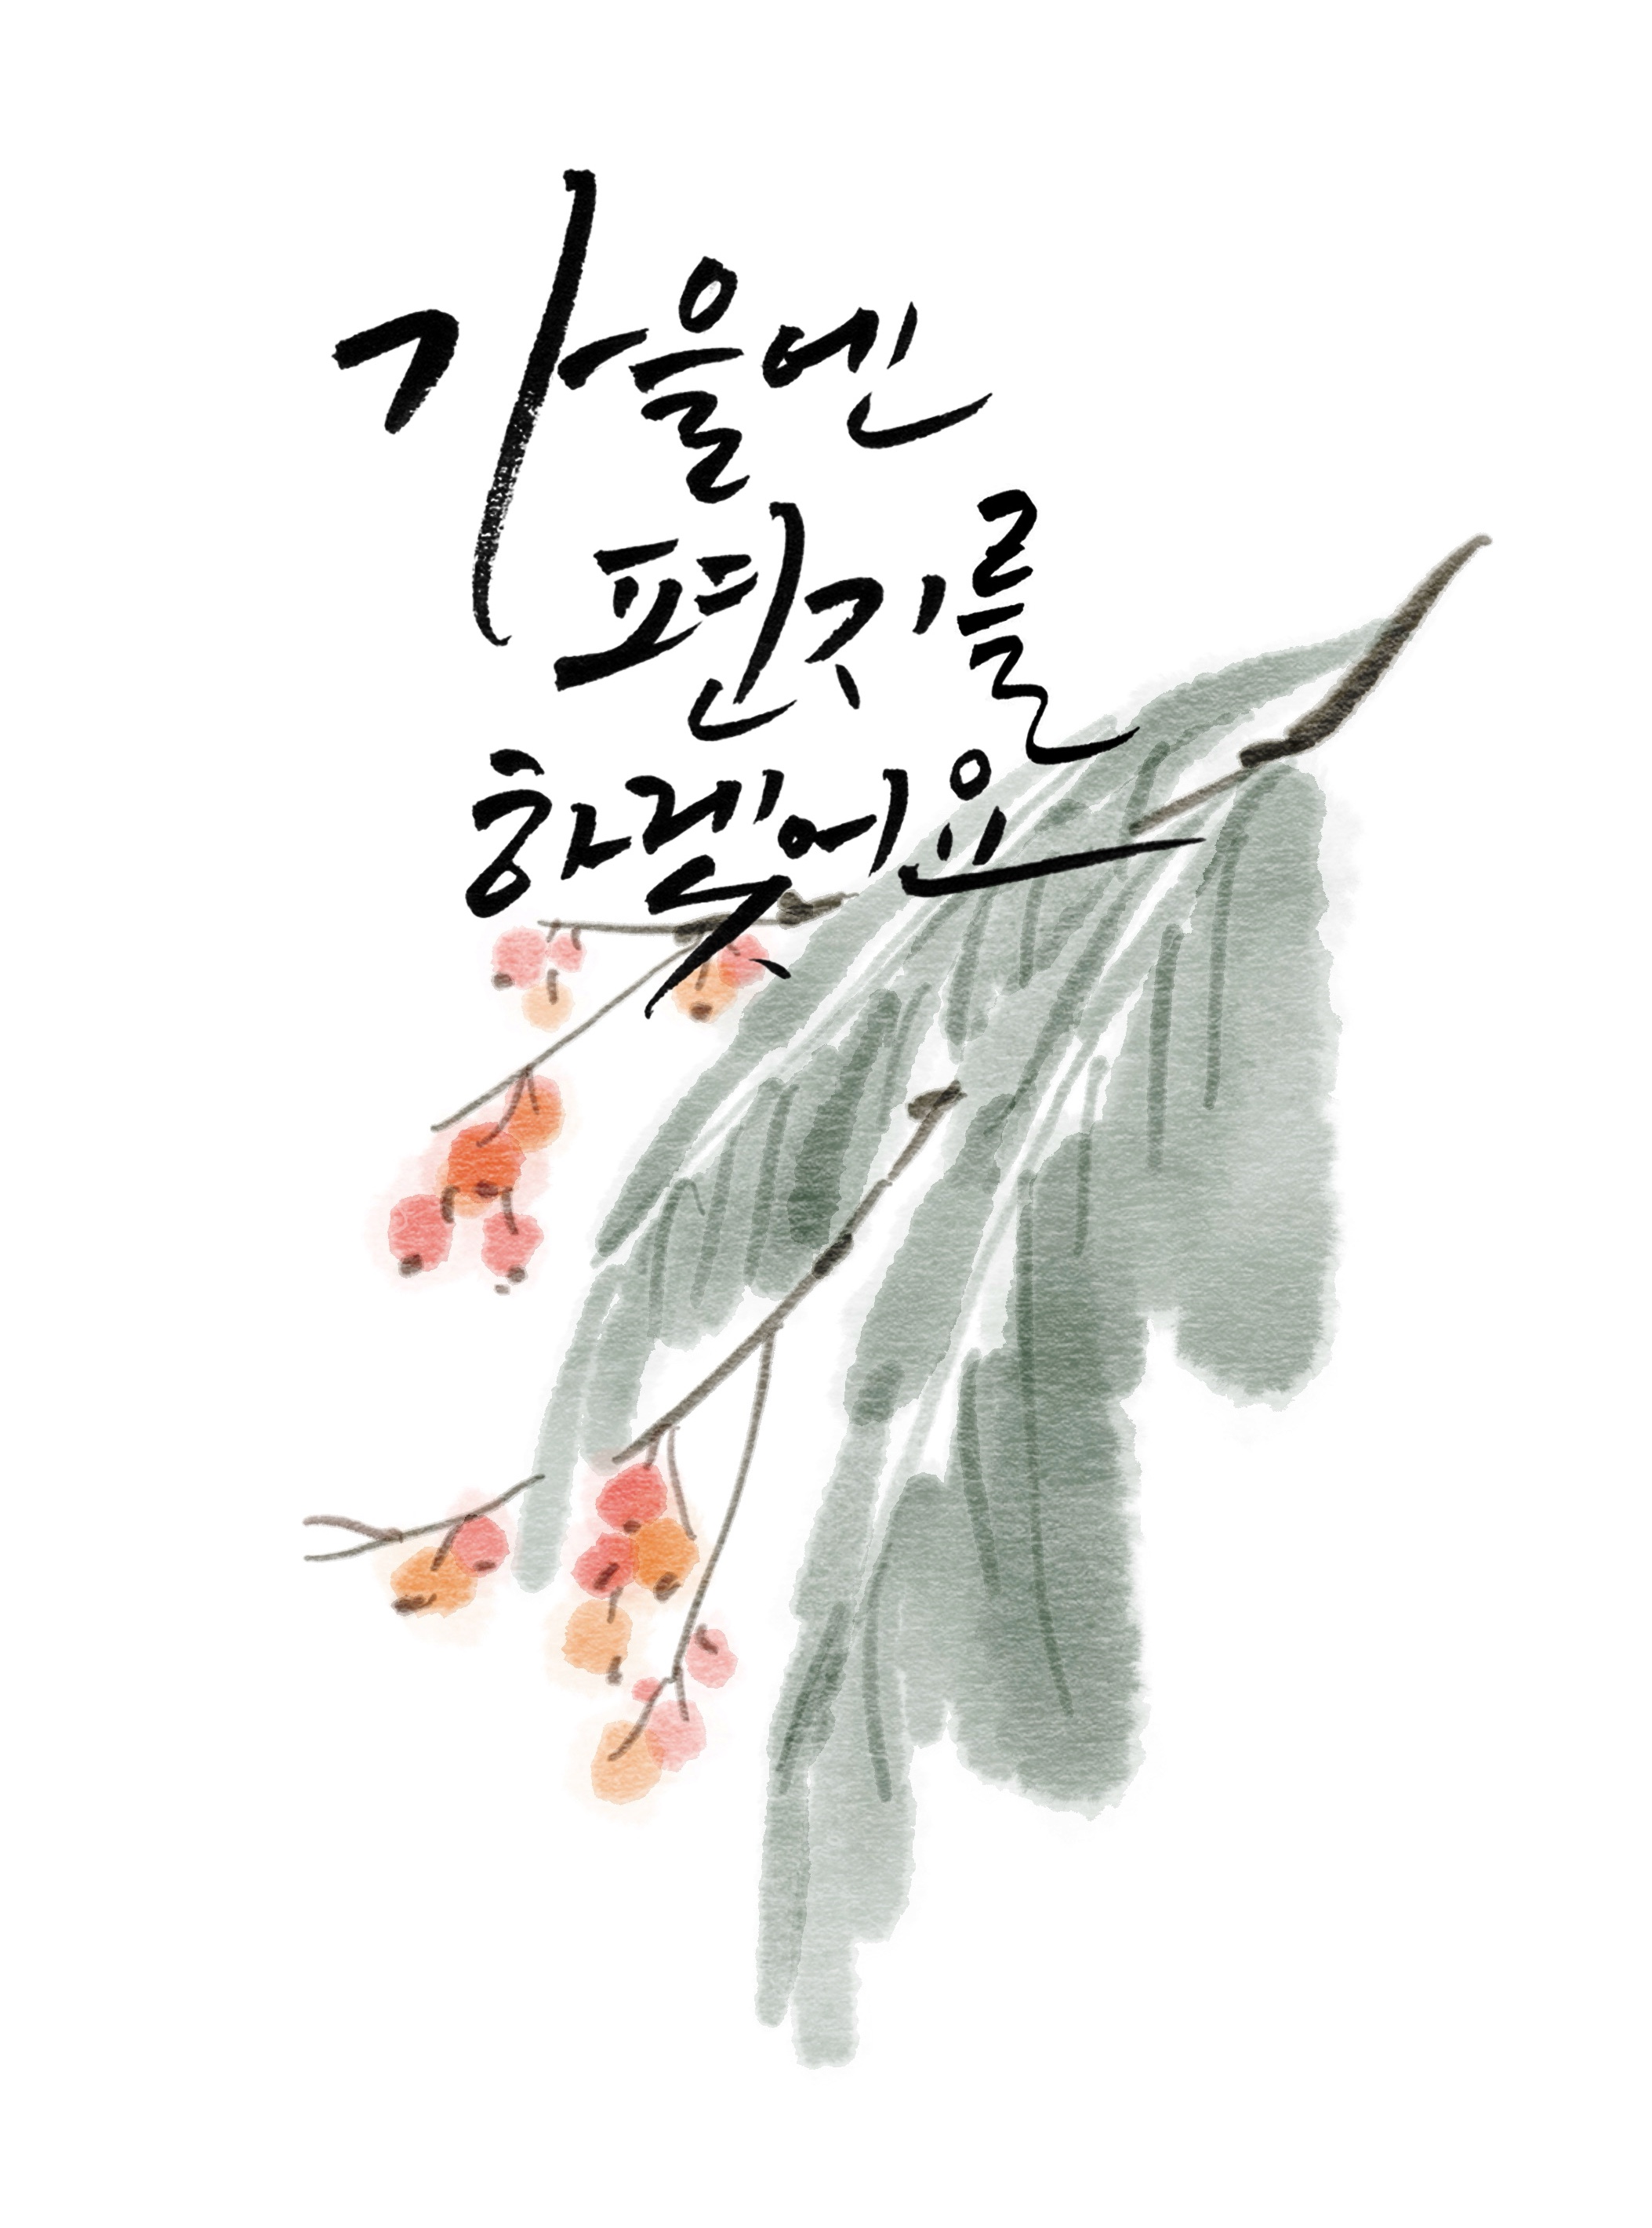 가을엔
편지를
하겠어요